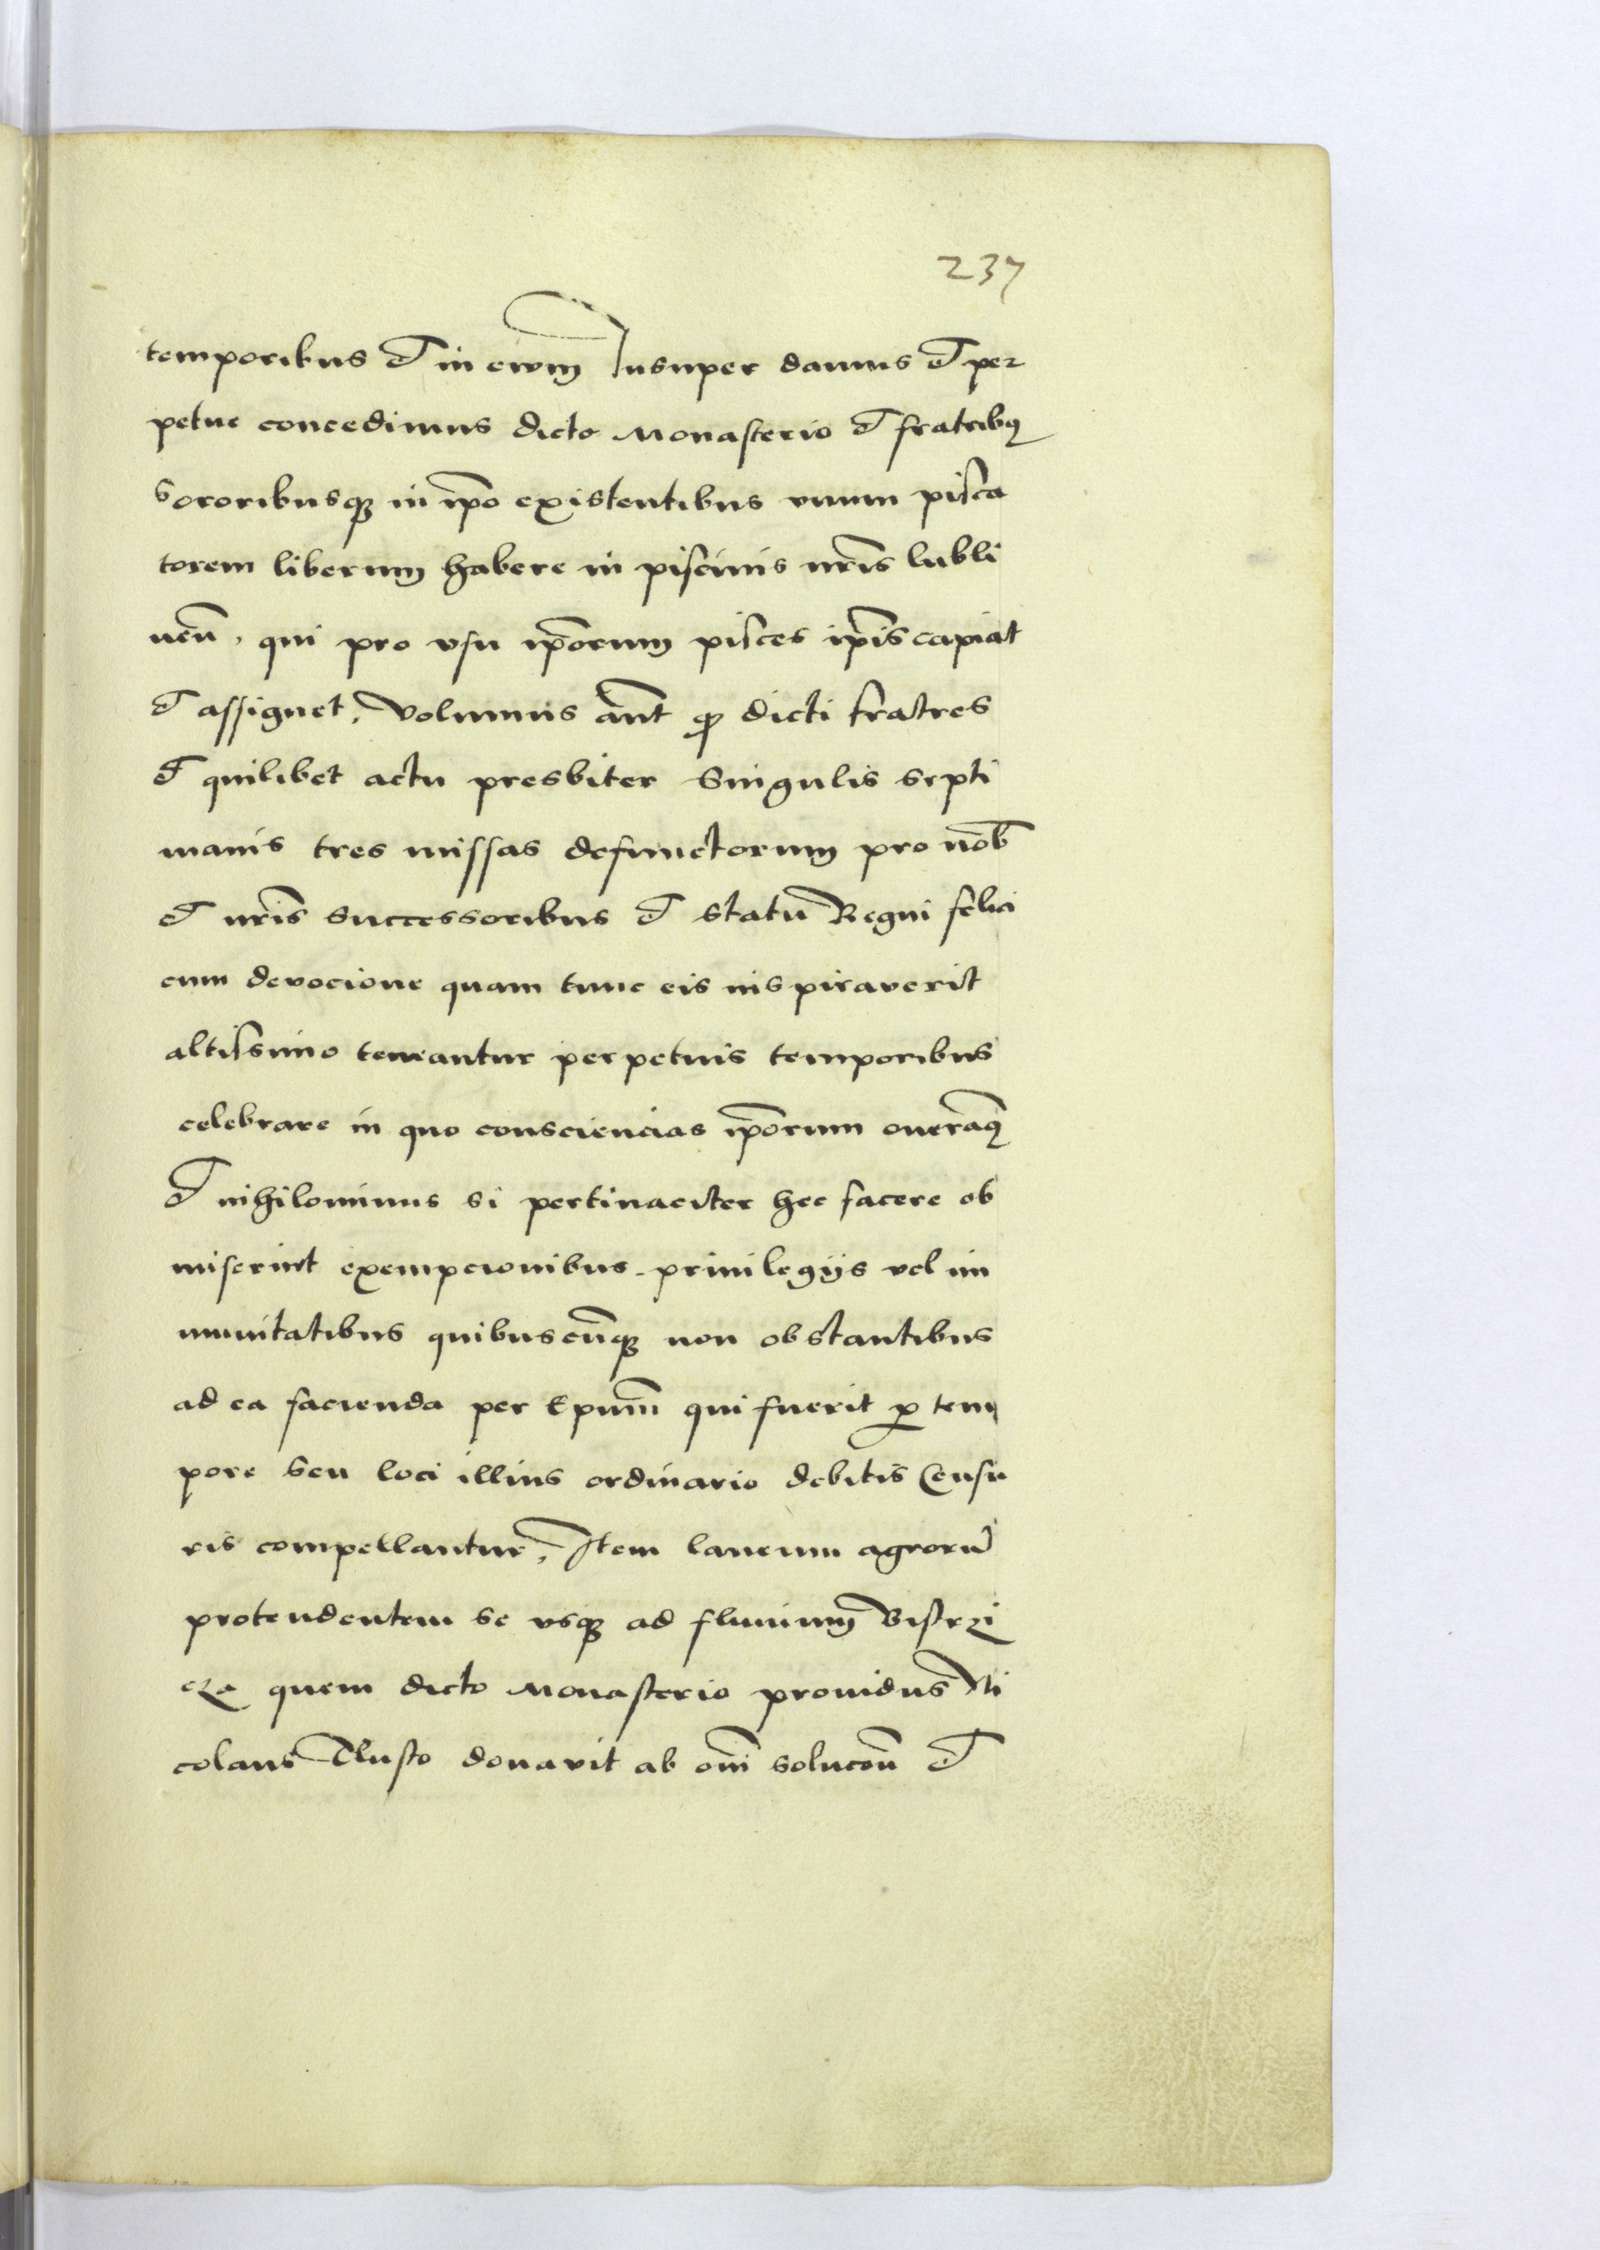 237
temporibus et in ewm Insuper damus et per
petue concedimus dicto Monasterio et fratribꝫ
Sororibusqꝫ in ip̄o existentibus vnum pisca
torem liberum habere in piscinis nr̄is lubli
nen̄, qui pro vsu ip̄orum pisces ip̄is capiat
et assignet, Volumus aūt ꝙ dicti fratres
et quilibet actu presbiter Singulis septi
manis tres missas defunctorum pro nob̄
et nr̄is Successoribus et statu Regni felici
cum devocione quam tunc eis inspiraverit
altissimo teneantur perpetuis temporibus
celebrare in quo consciencias ip̄orum onerāꝫ
et nihilominus si pertinaciter hec facere ob
miserint exempcionibus privilegijs vel im
munitatibus quibuscūqꝫ non obstantibus
ad ea facienda per Ep̄um qui fuerit ꝓ tem
pore Seu loci illius ordinario debitis Censu
ris compellantur, Item laneum agrorū
protendentem se vsqꝫ ad fluuium Bistrzi
cza quem dicto Monasterio prouidus Ni
colaus Tlusto donavit ab om̄i solucōn et